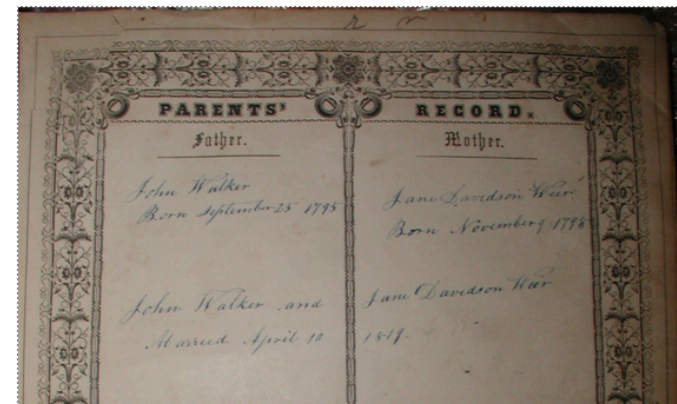 PARENTS' RECORD.
Father.
John Walker
Born September 25 1795
John Walker and
Married April 10
Mother.
Jane Davidson Weir
Born November 9 1798
Jane Davidson Weir
1819.